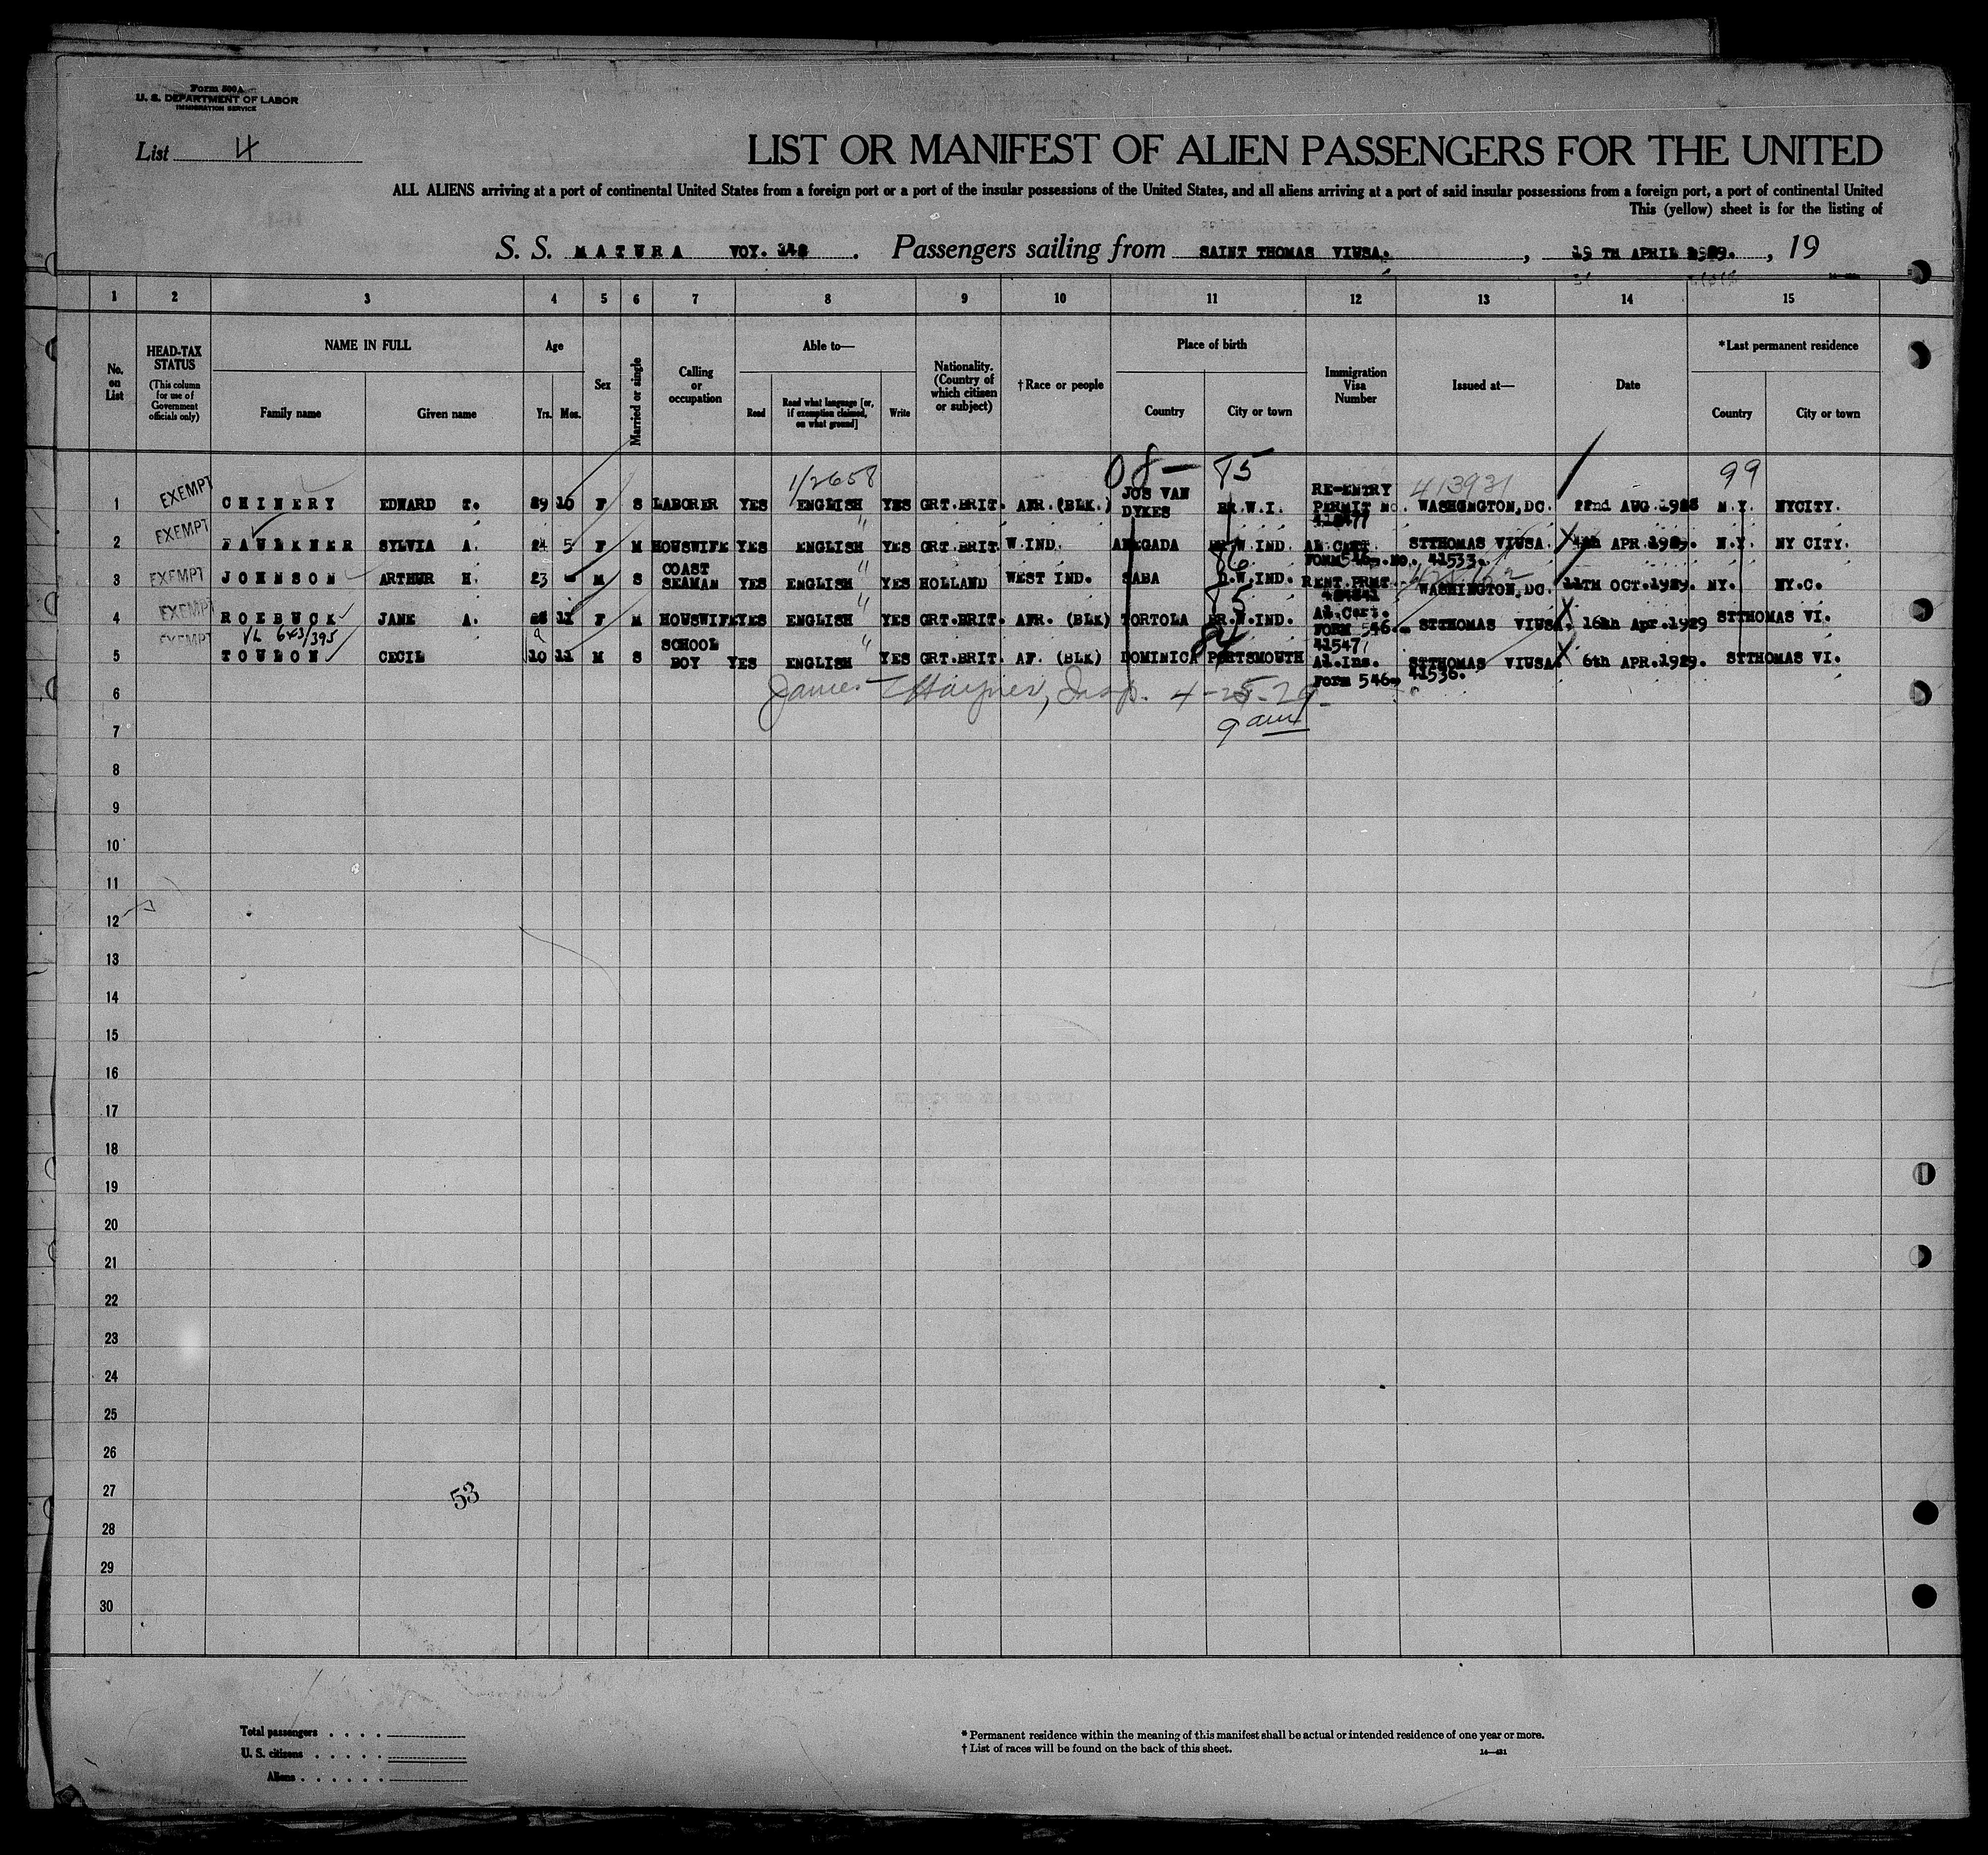 Form 500 A
U. S. DEPARTMENT OF LABOR
IMMIGRATION SERVICE
List 4
LIST OR MANIFEST OF ALIEN PASSENGERS FOR THE UNITED
ALL ALIENS arriving at a port of continental United States from a foreign port or a port of the insular possessions of the United States, and all aliens arriving at a port of said insular possessions from a foreign port, a port of continental United
This (yellow) sheet is for the listing of
S. S. MATURA VOY. Passengers sailing from SAINT THOMAS VIUSA. , 19 TH APRIL 1929. , 19
1 2 3 4 5 6 7 8 9 10 11 12 13 14 15
No. on List
HEAD-TAX STATUS (This column for use of Government officials only)
NAME IN FULL Family name Given name
Age Yrs. Mos.
Sex
Married or single
Calling or occupation
Able to— Read Read what language [or, if exemption claimed, on what ground] Write
Nationality. (Country of which citizen or subject)
† Race or people
Place of birth Country City or town
Immigration Visa Number
Issued at—
Date
* Last permanent residence Country City or town
1/2658 08- 85 99
1 EXEMPT CHINERY EDWARD T. 29 10 F S LABORER YES ENGLISH YES GRT.BRIT. AFR. (BLK.) JOS VAN DYKES BR.W.I. RE-ENTRY PERMIT No. 413931 WASHINGTON,DC. 22nd AUG.1928 N.Y. NYCITY.
2 EXEMPT FAULKNER SYLVIA A. 24 5 F M HOUSWIFE YES ENGLISH " YES GRT.BRIT. W.IND. ANEGADA BR.W.IND. AL CERT. FORM 546 NO. 41533. STTHOMAS VIUSA. X APR.1929. N.Y. NY CITY.
3 EXEMPT JOHNSON ARTHUR H. 23 - M S COAST SEAMAN YES ENGLISH " YES HOLLAND WEST IND. SABA 86 D.W.IND. RENT.PRMT. WASHINGTON,DC. 11TH OCT.1929. NY. NY.C.
4 EXEMPT ROEBUCK JANE A. 11 F M HOUSWIFE YES ENGLISH " YES GRT.BRIT. AFR. (BLK) TORTOLA 85 BR.W.IND. Al.Cert. FORM 546 41547 STTHOMAS VIUSA. X 16th Apr.1929 STTHOMAS VI.
VL 643/395
5 EXEMPT TOULON CECIL 9 10 11 M S SCHOOL BOY YES ENGLISH " YES GRT.BRIT. AF. (BLK) DOMINICA 84 PORTSMOUTH Al.Ins. Form 546 41536. STTHOMAS VIUSA. X 6th APR.1929. STTHOMAS VI.
6 James Haynes, Insp. 4-25-29
7 9 am
8
9
10
11
12
13
14
15
16
17
18
19
20
21
22
23
24
25
26
27 53
28
29
30
Total passengers . . . .
U. S. citizens . . . . .
Aliens . . . . . .
* Permanent residence within the meaning of this manifest shall be actual or intended residence of one year or more.
† List of races will be found on the back of this sheet.
14—421